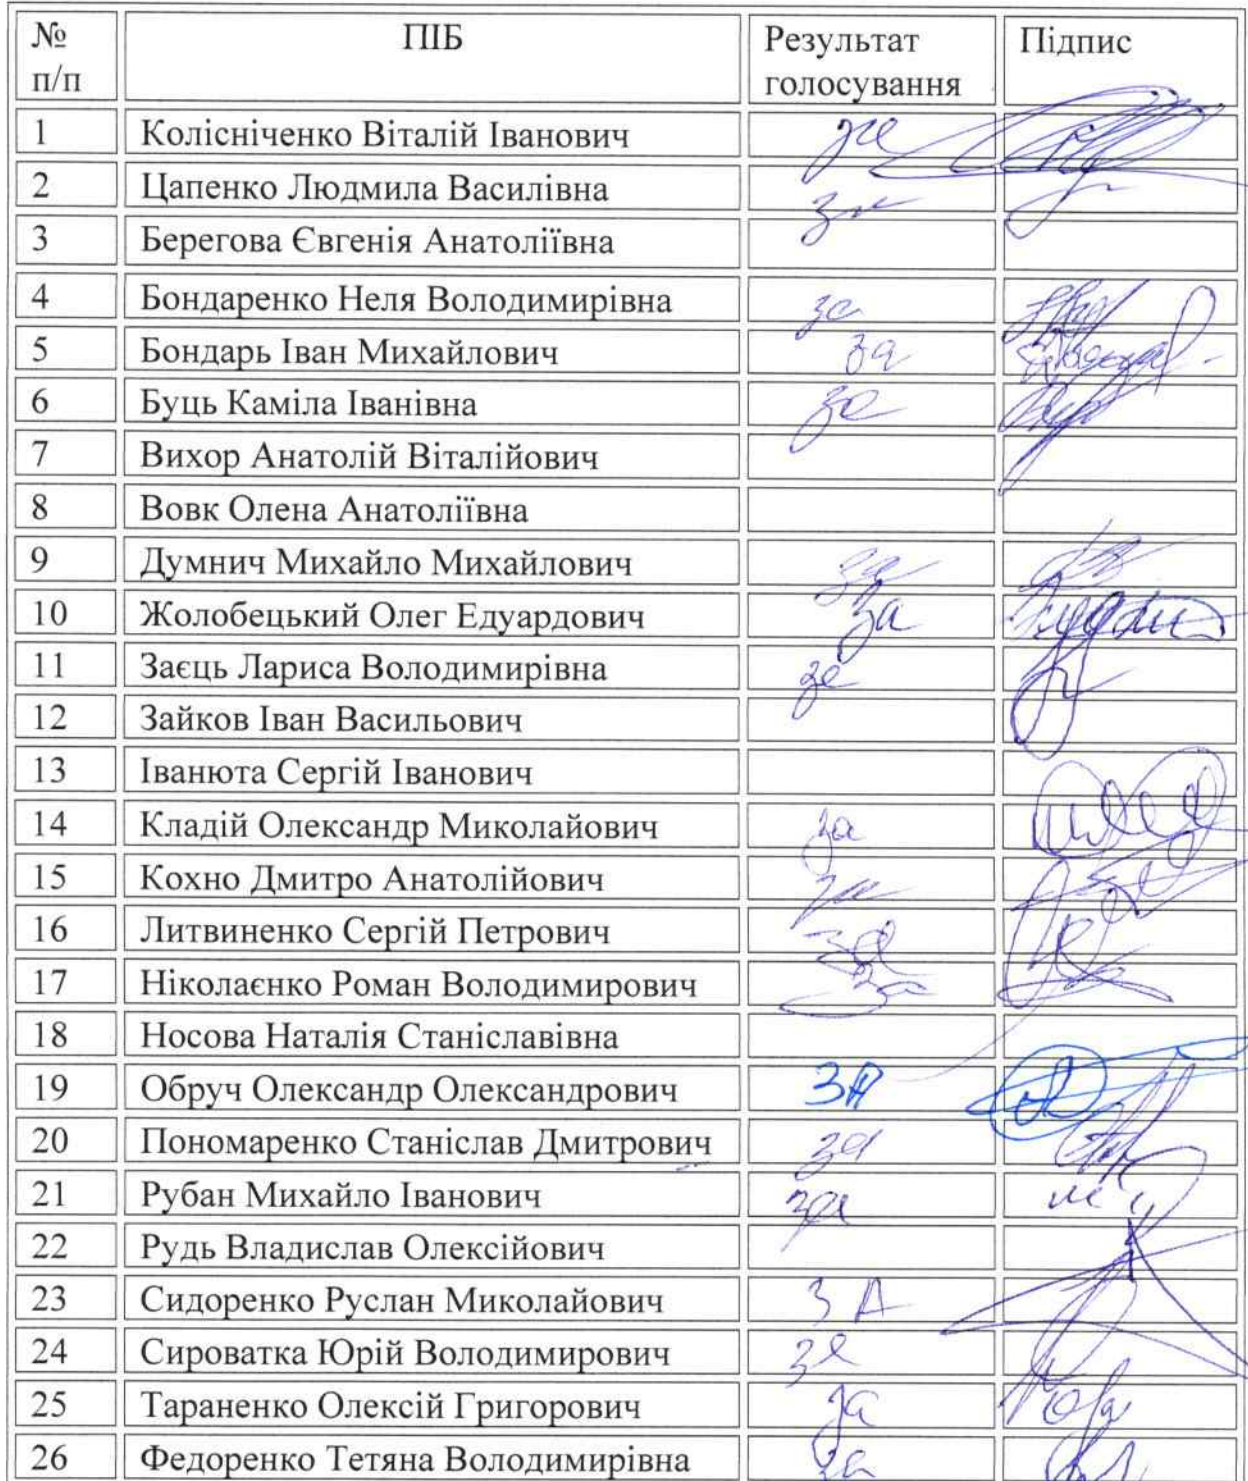 № п/п ПІБ Результат голосування Підпис
1 Колісніченко Віталій Іванович за
2 Цапенко Людмила Василівна за
3 Берегова Євгенія Анатоліївна
4 Бондаренко Неля Володимирівна за
5 Бондарь Іван Михайлович за
6 Буць Каміла Іванівна за
7 Вихор Анатолій Віталійович
8 Вовк Олена Анатоліївна
9 Думнич Михайло Михайлович за
10 Жолобецький Олег Едуардович за
11 Заєць Лариса Володимирівна за
12 Зайков Іван Васильович
13 Іванюта Сергій Іванович
14 Кладій Олександр Миколайович за
15 Кохно Дмитро Анатолійович за
16 Литвиненко Сергій Петрович за
17 Ніколаєнко Роман Володимирович за
18 Носова Наталія Станіславівна
19 Обруч Олександр Олександрович ЗА
20 Пономаренко Станіслав Дмитрович за
21 Рубан Михайло Іванович за
22 Рудь Владислав Олексійович
23 Сидоренко Руслан Миколайович ЗА
24 Сироватка Юрій Володимирович за
25 Тараненко Олексій Григорович за
26 Федоренко Тетяна Володимирівна за